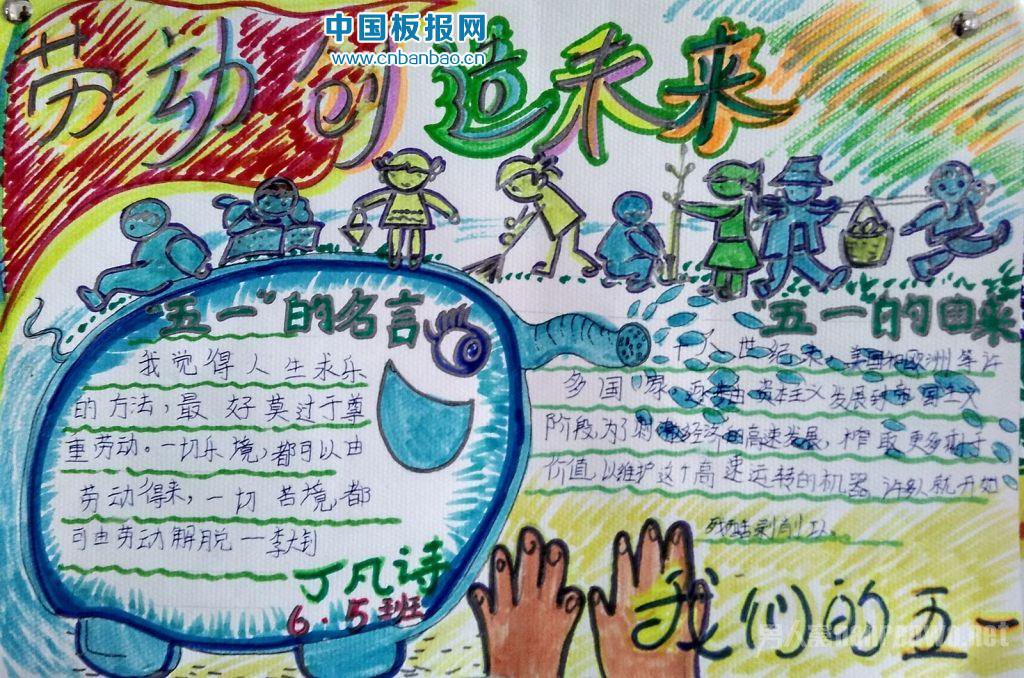 中国板报网
www.cnbanbao.cn
劳动创造未来
"五一"的名言
我觉得人生求乐
的方法，最好莫过于尊
重劳动。一切乐境，都可以由
劳动得来，一切苦境，都
可由劳动解脱 一李大钊
丁凡诗
6.5班
"五一"的由来
十八世纪末，美国和欧洲等许
多国家，逐步由资本主义发展到帝国主义
阶段，为了刺激经济的高速发展，榨取更多剩余
价值，以维护这个高速运转的机器
残酷剥削
我们的五一